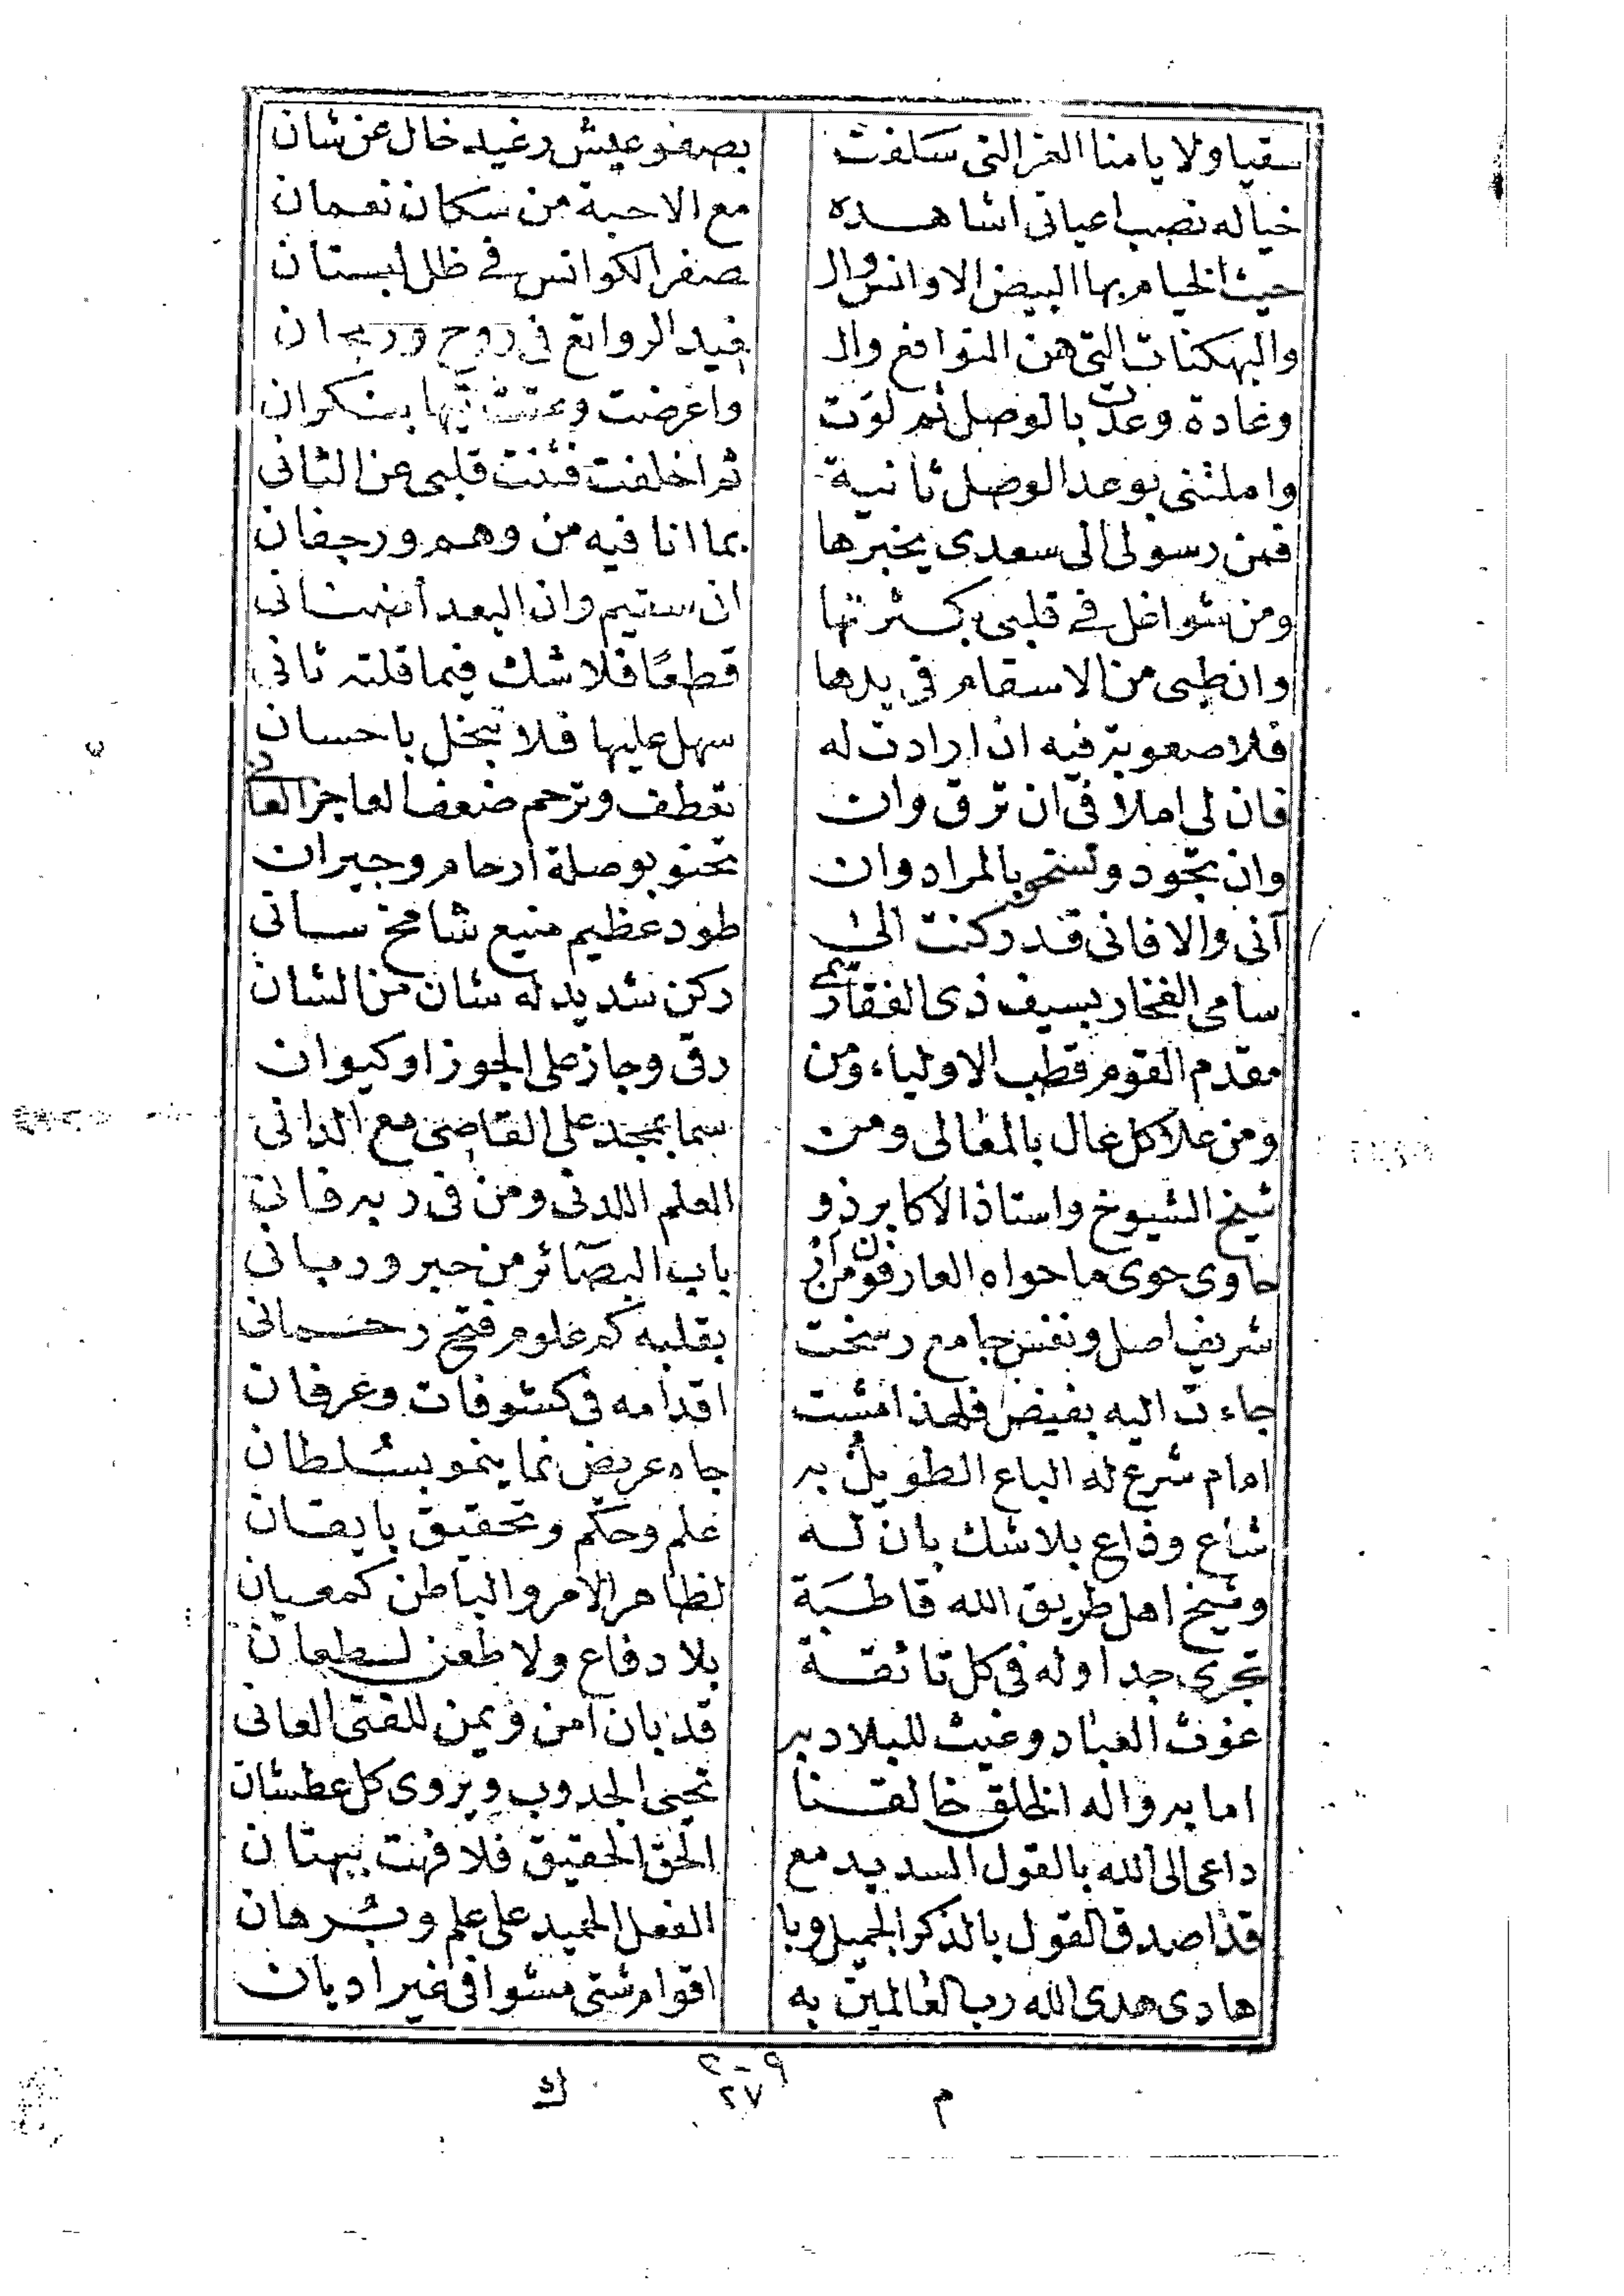 سقيا ولا يامنا الغر التى سَلفت بصفو عيش رغيد خال عن شان
خياله نصب اعيانى اشاهده مع الاحبة من سكان نعمان
حيث الخيام بها البيض الاوانس وال صفر الكوانس فى ظل لبستان
والبهكنات التى هن النوافع وال غيد الروائع فى روح وريحان
وغادة وعدت بالوصل ثم لوَت واعرضت وعنت تيها بنكران
واملتنى بوعد الوصل ثانية ثم اخلفت فثنت قلبى عن الثانى
فمن رسولى الى سعدى يخبرها بما انا فيه من وهم ورجفان
ومن شواغل فى قلبى بكثرتها ان سقيم وان البعد أضنانى
وان طبى من الاسقام فى يدها قطعًا فلا شك فيما قلته ثانى
فلا صعوبة فيه ان ارادت له سهل عليها فلا تبخل باحسان
فان لى املا فى ان ترق وان تعطف وترحم ضعف العاجز العانى
وان تجود وتسمح بالمراد وان تحنو بوصلة أرحام وجيران
آنى والا فانى قد ركنت الى طود عظيم منيع شامخ سانى
سامى الفخار بسيف ذى الفقار سمى ركن شديد له شان من الشان
مقدم القوم قطب الاولياء ومن رقى وجاز على الجوزا وكيوان
ومن علا كل عال بالمعالى ومن سما بمجد على القاصى مع الدانى
شيخ الشيوخ واستاذ الاكابر ذو العلم اللدنى ومن فى ربه فانى
حاوى حوى ما حواه العارفون من ار باب البصآئر من حبر وربانى
شريف اصل ونفس جامع رسخت بقلبه كم علوم فتح رحمانى
جاءت اليه بفيض فلهذا مشت اقدامه فى كشوفات وعرفان
امام شرع له الباع الطويل به جاه عريض نما ينمو بسُلطان
شاع وذاع بلا شك بان له علم وحكم وتحقيق بايقان
وشيخ اهل طريق الله قاطبَة لظاهر الامر والباطن كمعيان
تجرى جداوله فى كل تائقة بلا دفاع ولا طعن لطعان
غوث العباد وغيث للبلاد به قد بان امن ويمن للفتى العانى
اما به رواله الخلق خالقنا تحيى الجدوب ويروى كل عطشان
داعى الى الله بالقول السديد مع الحق الحقيق فلا فهت ببهتان
قدا صدق القول بالذكر الجميل وبا الفعل الحميد على علم وبُرهان
هادى هدى الله رب العالمين به اقوام شتى مشوا فى غير اديان
٢٠٩
٢٧
م ك